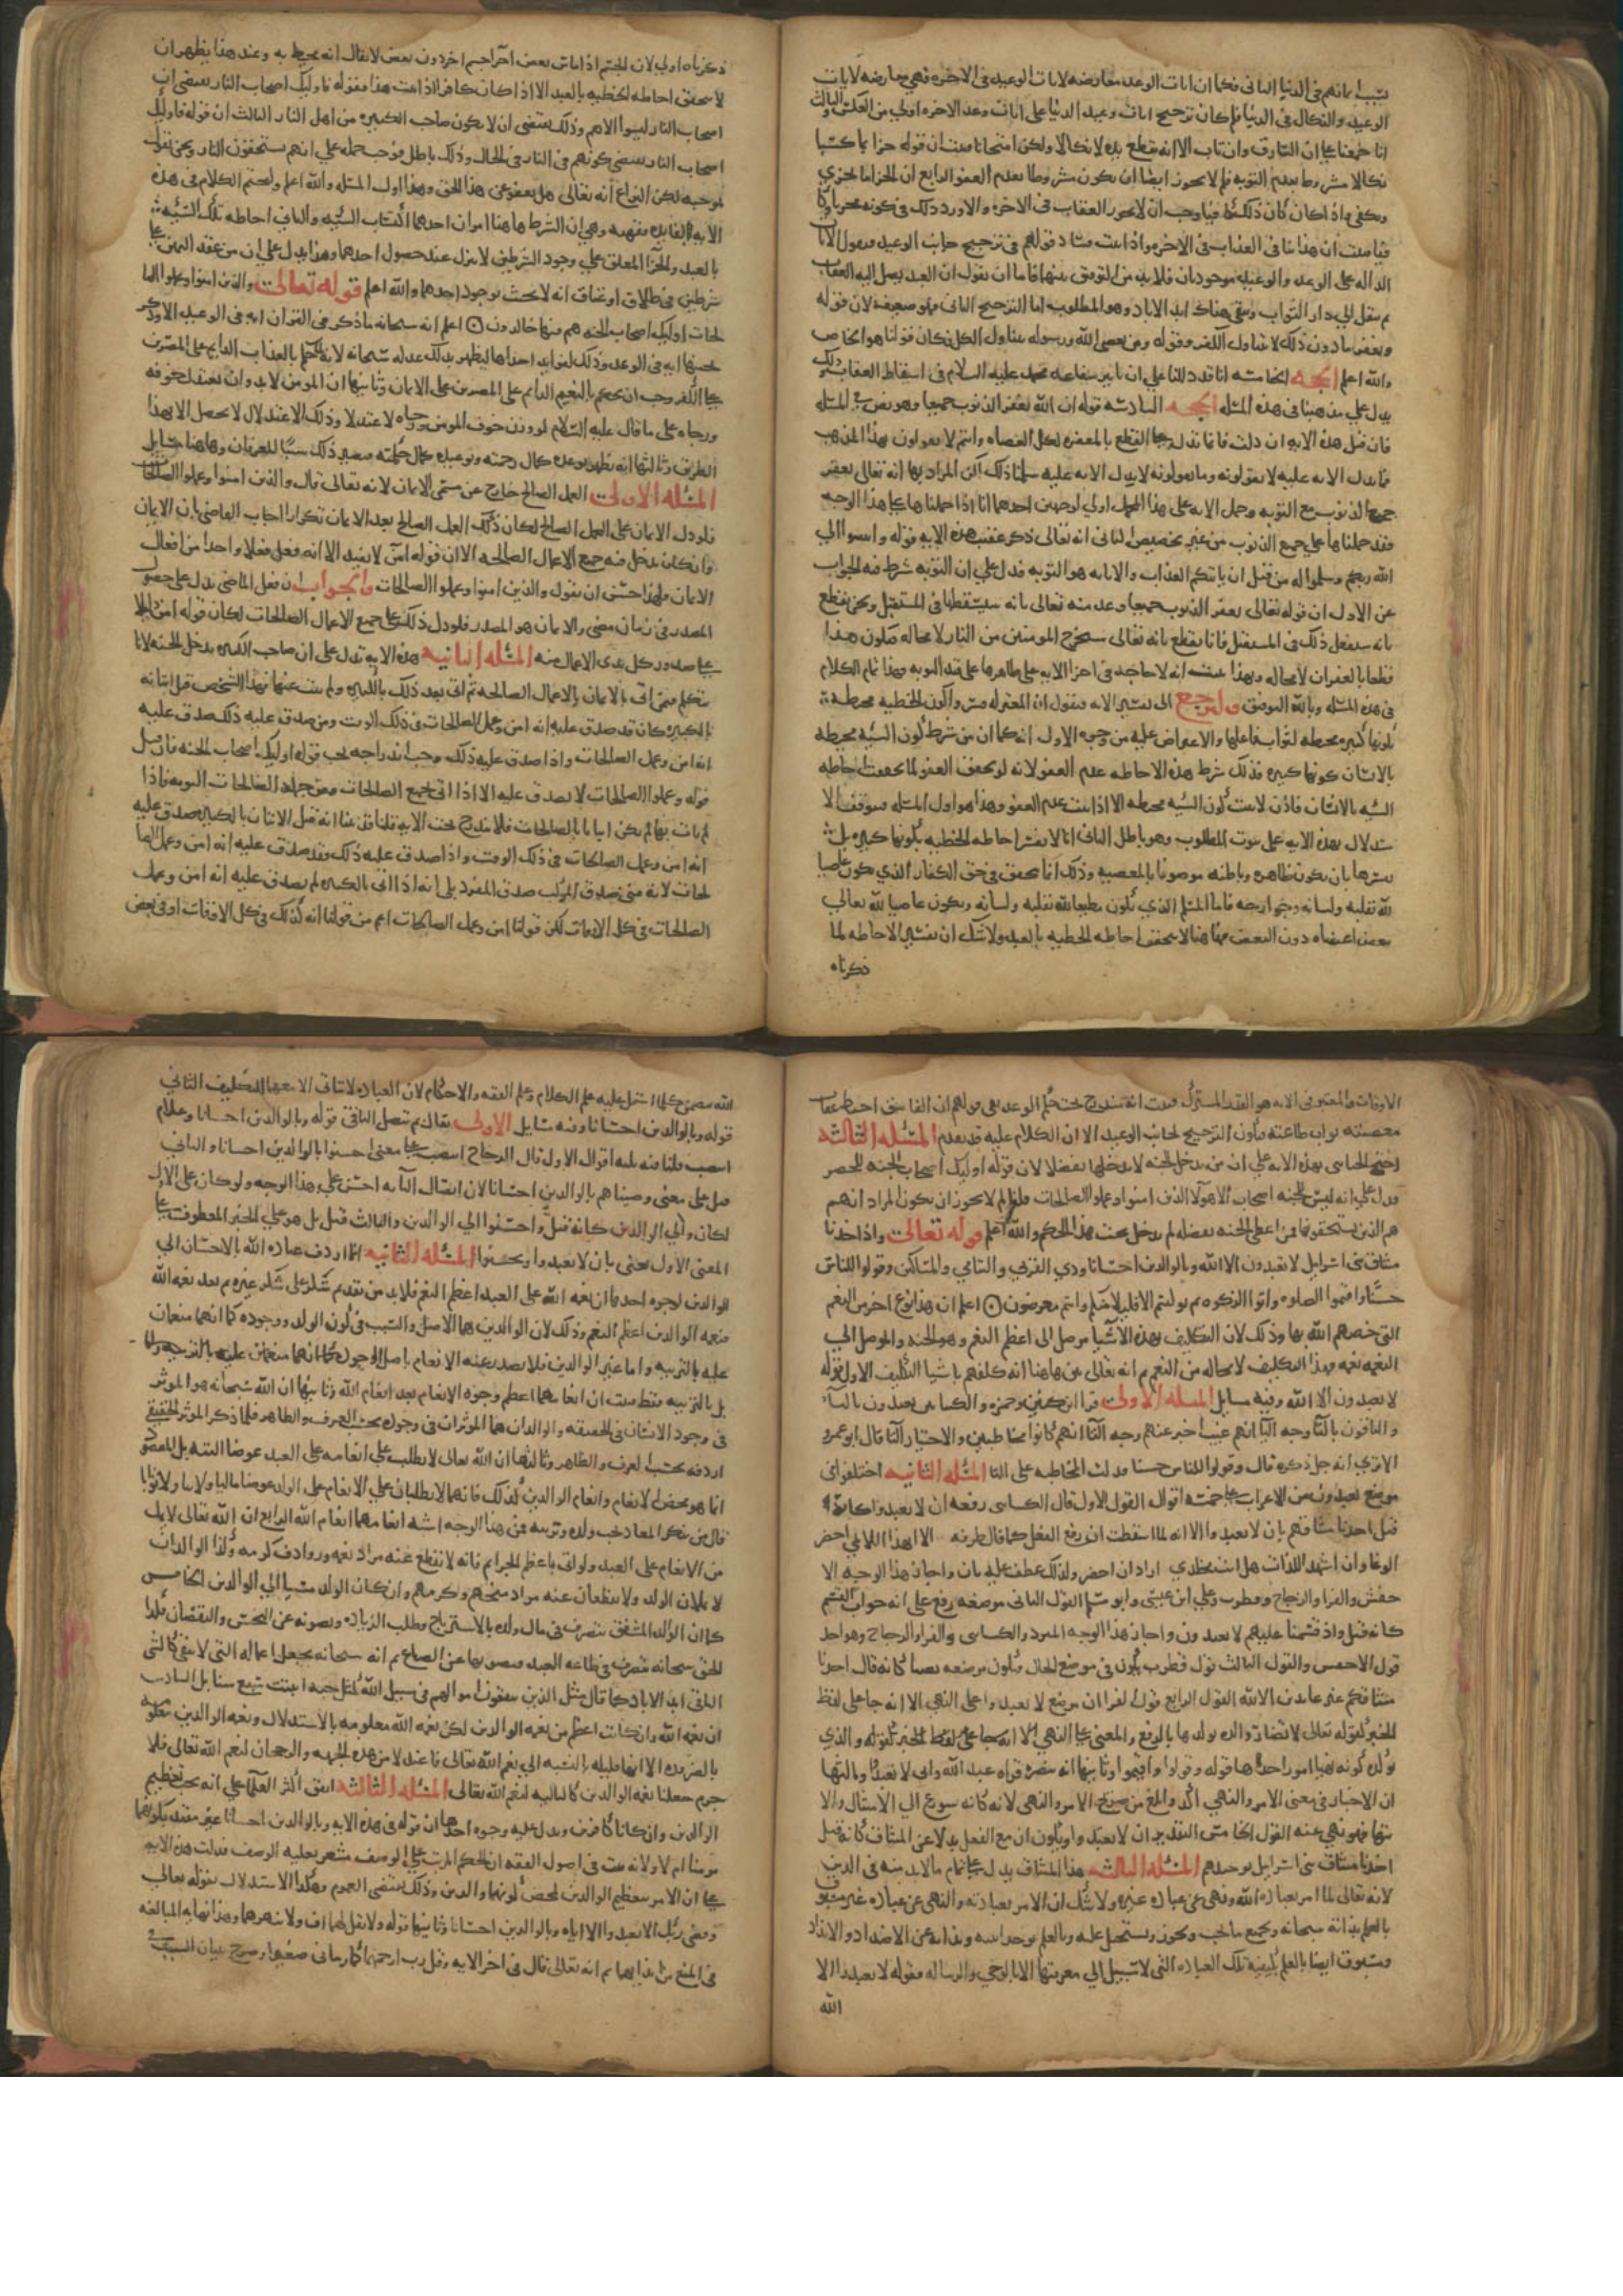 بسبب ايمانهم في الدنيا الثاني فكما ان ايات الوعد معارضه لايات الوعيد في الاخره فهي معارضه لايات
الوعيد والنكال في الدنيا فلم كان ترجيح ايات وعيد الدنيا على ايات وعد الاخره اولى من العكس الثالث
انا اجمعنا على ان السارق وان تاب الا انه تقطع يده لا نكالا ولكن امتحانا فثبت ان قوله جزا بما كسبا
نكالا مشروط بعدم التوبه فلم لا يجوز ايضا ان يكون مشروطا بعدم العفو الرابع ان الجزا ما يجزي
ويكفي واذا كان كان ذلك كافيا وجب ان لا يجوز العقاب في الاخره والا قدح ذلك في كونه مجزيا وكافيا
فثبت ان هذا ينافي العذاب في الاخره واذا ثبت فساد قولهم في ترجيح جانب الوعيد فنقول الايات
الداله على الوعد والوعيد موجودتان فلا بد من التوفيق بينهما فاما ان نقول ان العبد يصل اليه العقاب
ثم ينقل الى دار الثواب ويبقى هناك ابد الاباد وهو المطلوب اما الترجيح الثاني فهو ضعيف لان قوله
ويغفر ما دون ذلك لا يتناول الكفر وقوله ومن يعص الله ورسوله يتناول الكل فكان قولنا هو الخاص
والله اعلم الحجه الخامسه انا قد دللنا على ان تاثير شفاعه محمد عليه السلام في اسقاط العقاب وذلك
يدل على مذهبنا في هذه المسله الحجه السادسه قوله ان الله يغفر الذنوب جميعا وهو نص في المسله
فان قيل هذه الايه ان دلت فانما تدل على القطع بالمغفره لكل العصاه وانتم لا تقولون بهذا المذهب
فما تدل الايه عليه لا تقولونه وما تقولونه لا تدل الايه عليه سلمنا ذلك لكن المراد بها انه تعالى يغفر
جميع الذنوب مع التوبه وحمل الايه على هذا المحمل اولى لوجهين احدهما انا اذا حملناها على هذا الوجه
فقد حملناها على جميع الذنوب من غير تخصيص الثاني انه تعالى ذكر عقيب هذه الايه قوله وانيبوا الى
الله ربكم واسلموا له من قبل ان ياتيكم العذاب والانابه هو التوبه فدل على ان التوبه شرط فيه الجواب
عن الاول ان قوله تعالى يغفر الذنوب جميعا وعد منه تعالى بانه سيسقطها في المستقبل ونحن نقطع
بانه سيفعل ذلك في المستقبل فانا نقطع بانه تعالى سيخرج المومنين من النار لا محاله فيكون هذا
قطعا بالغفران لا محاله وبهذا ثبت انه لا حاجه في اجرا الايه على ظاهرها على قيد التوبه فهذا تمام الكلام
في هذه المسله وبالله التوفيق ولنرجع الى تفسير الايه فنقول ان المعتزله فسروا كون الخطيه محيطه
بكونها كبيره محيطه لثواب فاعلها والاعتراض عليه من وجوه الاول انه كما ان من شرط كون السيه محيطه
بالانسان كونها كبيره فكذلك شرط هذه الاحاطه عدم العفو لانه لو تحقق العفو لما تحققت احاطه
السيه بالانسان فاذن لا يثبت كون السيه محيطه الا اذا ثبت عدم العفو وهذا هو اول المسله فيتوقف الا
ستدلال بهذه الايه على ثبوت المطلوب وهو باطل الثاني انا لا نفسر احاطه الخطيه بكونها كبيره بل
نفسرها بان يكون ظاهره وباطنه موصوفا بالمعصيه وذلك انما يتحقق في حق الكفار الذي يكون عاصيا
لله بقلبه ولسانه وجوارحه فاما المسلم الذي يكون مطيعا لله بقلبه ولسانه ويكون عاصيا لله تعالى
ببعض اعضاه دون البعض فهاهنا لا يتحقق احاطه الخطيه بالعبد ولا شك ان تفسير الاحاطه بما
ذكرناه
ذكرناه اولى لان الجسم اذا ماس بعض اجزا جسم اخر دون بعض لا يقال انه محيط به وعند هذا يظهر ان
لا يتحقق احاطه الخطيه بالعبد الا اذا كان كافرا اذا ثبت هذا فقوله فاوليك اصحاب النار يقتضي ان
اصحاب النار ليسوا الا هم وذلك يقتضي ان لا يكون صاحب الكبيره من اهل النار الثالث ان قوله فاوليك
اصحاب النار يقتضي كونهم في النار في الحال وذلك باطل فوجب حمله على انهم يستحقون النار ونحن نقول
بموجبه لكن النزاع انه تعالى هل يعفو عن هذا الحق وهذا اول المسله والله اعلم ولنختم الكلام في هذه
الايه بقاعده فقهيه وهي ان الشرط هاهنا امران احدهما اكتساب السيه والثاني احاطه تلك السيه
بالعبد والجزا المعلق على وجود الشرطين لا ينزل عند حصول احدهما وهذا يدل على ان من عقد اليمين على
شرطين في طلاق او عتاق انه لا يحنث بوجود احدهما والله اعلم قوله تعالى والذين امنوا وعملوا الصا
لحات اوليك اصحاب الجنه هم فيها خالدون اعلم انه سبحانه ما ذكر في القران ايه في الوعيد الا وذكر
بجنبها ايه في الوعد وذلك لفوايد احداها ليظهر بذلك عدله سبحانه لانه لما حكم بالعذاب الدايم على المصرين
على الكفر وجب ان يحكم بالنعيم الدايم على المصرين على الايمان وثانيها ان المومن لا بد وان يعتدل خوفه
ورجاه على ما قال عليه السلام لو وزن خوف المومن ورجاه لاعتدلا وذلك الاعتدال لا يحصل الا بهذا
الطريق وثالثها انه يظهر بوعده كمال رحمته وبوعيده كمال حكمته فيصير ذلك سببا للعرفان وهاهنا مسايل
المسله الاولى العمل الصالح خارج عن مسمى الايمان لانه تعالى قال والذين امنوا وعملوا الصالحات
فلو دل الايمان على العمل الصالح لكان ذكر العمل الصالح بعد الايمان تكرارا اجاب القاضي بان الايمان
وان كان يدخل فيه جميع الاعمال الصالحه الا ان قوله امن لا يفيد الا انه فعل فعلا واحدا من افعال
الايمان فلهذا حسن ان يقول والذين امنوا وعملوا الصالحات والجواب ان فعل الماضي يدل على حصول
المصدر في زمان مضى والايمان هو المصدر فلو دل ذلك على جميع الاعمال الصالحات لكان قوله امن دليلا
على صدور كل تلك الاعمال منه المسله الثانيه هذه الايه تدل على ان صاحب الكبيره يدخل الجنه لانا
نتكلم فيمن اتى بالايمان وبالاعمال الصالحه ثم اتى بعد ذلك بالكبيره ولم يتب عنها فهذا الشخص قبل اتيانه
بالكبيره كان قد صدق عليه انه امن وعمل الصالحات في ذلك الوقت ومن صدق عليه ذلك صدق عليه
انه امن وعمل الصالحات واذا صدق عليه ذلك وجب اندراجه تحت قوله اوليك اصحاب الجنه فان قيل
قوله وعملوا الصالحات لا يصدق عليه الا اذا اتى بجميع الصالحات ومن جمله الصالحات التوبه فاذا
لم يات بها لم يكن اتيا بالصالحات فلا يندرج تحت الايه قلنا قد بينا انه قبل الاتيان بالكبيره صدق عليه
انه امن وعمل الصالحات في ذلك الوقت واذا صدق عليه ذلك فقد صدق عليه انه امن وعمل الصا
لحات لانه متى صدق المركب صدق المفرد بلى انه اذا اتى بالكبيره لم يصدق عليه انه امن وعمل
الصالحات في كل الاوقات لكن قولنا امن وعمل الصالحات اعم من قولنا انه كذلك في كل الاوقات او في بعض
الاوقات والمعتبر في الايه هو القدر المشترك فثبت انه مندرج تحت حكم الوعد بقي قولهم ان الفاسق احبط عقاب
معصيته ثواب طاعته فيكون الترجيح لجانب الوعيد الا ان الكلام عليه قد تقدم المسله الثالثه
احتج الجباي بهذه الايه على ان من يدخل الجنه لا يدخلها تفضلا لان قوله اوليك اصحاب الجنه للحصر
فدل على انه ليس للجنه اصحاب الا هولا الذين امنوا وعملوا الصالحات قلنا لم لا يجوز ان يكون المراد انهم
هم الذين يستحقونها فمن اعطي الجنه تفضلا لم يدخل تحت هذا الحكم والله اعلم قوله تعالى واذ اخذنا
ميثاق بني اسرايل لا تعبدون الا الله وبالوالدين احسانا وذي القربى واليتامى والمساكين وقولوا للناس
حسنا واقيموا الصلوه واتوا الزكوه ثم توليتم الا قليلا منكم وانتم معرضون اعلم ان هذا نوع اخر من النعم
التي خصهم الله بها وذلك لان التكليف بهذه الاشيا موصل الى اعظم النعم وهو الجنه والموصل الى
النعمه نعمه فهذا التكليف لا محاله من النعم ثم انه تعالى بين هاهنا انه كلفهم باشيا التكليف الاول قوله
لا تعبدون الا الله وفيه مسايل المسله الاولى قرا ابن كثير وحمزه والكساي يعبدون باليا
والباقون بالتا وجه اليا انهم غيب اخبر عنهم وجه التا انهم كانوا مخاطبين والاختيار التا قال ابو عمرو
الا ترى انه جل ذكره قال وقولوا للناس حسنا فدلت المخاطبه على التا المسله الثانيه اختلفوا في
موضع تعبدون من الاعراب على خمسه اقوال القول الاول قال الكساي رفعه ان لا تعبدوا كانه
قيل اخذنا ميثاقهم بان لا تعبدوا الا انه لما اسقطت ان رفع الفعل كما قال طرفه الا ايهذا اللايمي احضر
الوغا وان اشهد اللذات هل انت مخلدي اراد ان احضر ولذلك عطف عليه بان واجاز هذا الوجه الا
خفش والفرا والزجاج وقطرب وعلي ابن عيسى وابو مسلم القول الثاني موضعه رفع على انه جواب القسم
كانه قيل واذ اقسمنا عليهم لا تعبدون واجاز هذا الوجه المبرد والكساي والفرا والزجاج وهو احد
قولي الاخفش والقول الثالث قول قطرب يكون في موضع الحال فيكون موضعه نصبا كانه قال اخذنا
ميثاقكم غير عابدين الا الله القول الرابع قول الفرا ان موضع لا تعبدوا على النهي الا انه جا على لفظ
الخبر كقوله تعالى لا تضار والده بولدها بالرفع والمعنى على النهي الا انه جا على لفظ الخبر كقوله والذي
يوكد كونه نهيا امور احدها قوله وقولوا واقيموا وثانيها انه ينصره قراه عبد الله وابي لا تعبدوا وثالثها
ان الاخبار في معنى الامر والنهي اكد وابلغ من صريح الامر والنهي لانه كانه سورع الى الامتثال والا
نتها فهو يخبر عنه القول الخامس التقدير ان لا تعبدوا وتكون ان مع الفعل بدلا عن الميثاق كانه قيل
اخذنا ميثاق بني اسرايل بتوحيدهم المسله الثالثه هذا الميثاق يدل على تمام ما لا بد منه في الدين
لانه تعالى لما امر بعباده الله ونهى عن عباده غيره ولا شك ان الامر بعبادته والنهي عن عباده غيره مسبوق
بالعلم بذاته سبحانه وجميع ما يجب ويجوز ويستحيل عليه وبالعلم بوحدانيته وبراته عن الاضداد والانداد
ومسبوق ايضا بالعلم بكيفيه تلك العباده التي لا سبيل الى معرفتها الا بالوحي والرساله فقوله لا تعبدون الا
الله
الله يتضمن كل ما اشتمل عليه علم الكلام وعلم الفقه والاحكام لان العباده لا تتاتى الا معها التكليف الثاني
قوله وبالوالدين احسانا وفيه مسايل الاولى يقال بم يتصل الباقي قوله وبالوالدين احسانا وعلام
انتصب قلنا فيه ثلثه اقوال الاول قال الزجاج انتصب على معنى احسنوا بالوالدين احسانا والثاني
قيل على معنى وصيناهم بالوالدين احسانا لان اتصال البا به احسن على هذا الوجه ولو كان على الاول
لكان والى الوالدين كانه قيل واحسنوا الى الوالدين والثالث قيل بل هو على الخبر المعطوف على
المعنى الاول يعني بان لا تعبدوا وتحسنوا المسله الثانيه انما اردف عباده الله بالاحسان الى
الوالدين لوجوه احدها ان نعمه الله على العبد اعظم النعم فلا بد من تقديم شكره على شكر غيره ثم بعد نعمه الله
فنعمه الوالدين اعظم النعم وذلك لان الوالدين هما الاصل والسبب في كون الولد ووجوده كما انهما منعمان
عليه بالتربيه واما غير الوالدين فلا يصدر عنه الانعام باصل الوجود
بل بالتربيه فقط فثبت ان انعامهما اعظم وجوه الانعام بعد انعام الله وثانيها ان الله سبحانه هو الموثر
في وجود الانسان في الحقيقه والوالدان هما الموثران في وجوده بحسب العرف والظاهر فلما ذكر الموثر الحقيقي
اردفه بحسب العرف والظاهر وثالثها ان الله تعالى لا يطلب على انعامه على العبد عوضا البته بل المقصود
انما هو محض الانعام وانعام الوالدين كذلك فانهما لا يطلبان على الانعام على الولد عوضا ماليا ولا ثوابا
فان من ينكر المعاد يحب ولده ويربيه فمن هذا الوجه اشبه انعامهما انعام الله الرابع ان الله تعالى لا يمل
من الانعام على العبد ولو اتى باعظم الجرايم فانه لا يقطع عنه مواد نعمه وروادف كرمه وكذا الوالدان
لا يملان الولد ولا يقطعان عنه مواد منحهم وكرمهم وان كان الولد مسيا الى الوالدين الخامس
كما ان الوالد المشفق يتصرف في مال ولده بالاسترباح وطلب الزياده ويصونه عن البخس والنقصان فكذا
الحق سبحانه متصرف في طاعه العبد فيصونها عن الضياع ثم انه سبحانه يجعل اعماله التي لا تبقى كالشي
الباقي ابد الاباد كما قال مثل الذين ينفقون اموالهم في سبيل الله كمثل حبه انبتت سبع سنابل السادس
ان نعمه الله وان كانت اعظم من نعمه الوالدين لكن نعمه الله معلومه بالاستدلال ونعمه الوالدين معلومه
بالضروره الا انها قليله بالنسبه الى نعم الله تعالى فاعتدلا من هذه الجهه والرجحان لنعم الله تعالى فلا
جرم جعلنا نعمه الوالدين كالتاليه لنعم الله تعالى المسله الثالثه اتفق اكثر العلما على انه يجب تعظيم
الوالدين وان كانا كافرين ويدل عليه وجوه احدها ان قوله في هذه الايه وبالوالدين احسانا غير مقيد بكونهما
مومنين ام لا ولانه ثبت في اصول الفقه ان الحكم المرتب على الوصف مشعر بعليه الوصف فدلت هذه الايه
على ان الامر بتعظيم الوالدين لمحض كونهما والدين وذلك يقتضي العموم وهكذا الاستدلال بقوله تعالى
وقضى ربك الا تعبدوا الا اياه وبالوالدين احسانا وثانيها قوله ولا تقل لهما اف ولا تنهرهما وهذا نهايه المبالغه
في المنع من ايذايهما ثم انه تعالى قال في اخر الايه وقل رب ارحمهما كما ربياني صغيرا فصرح ببيان السبب في